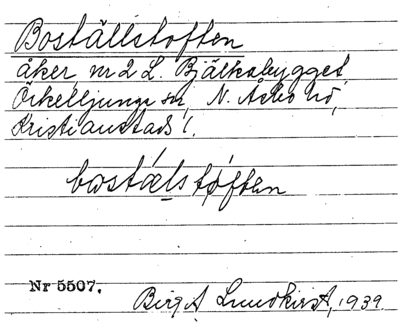 Boställstoften
åker nr 2 L. Bjälkabygget,
Örkelljunga sn, N. Åsbo hd,
Kristianstads l.
bostælstoften
Nr 5507.
Birgit Lundkvist, 1939.